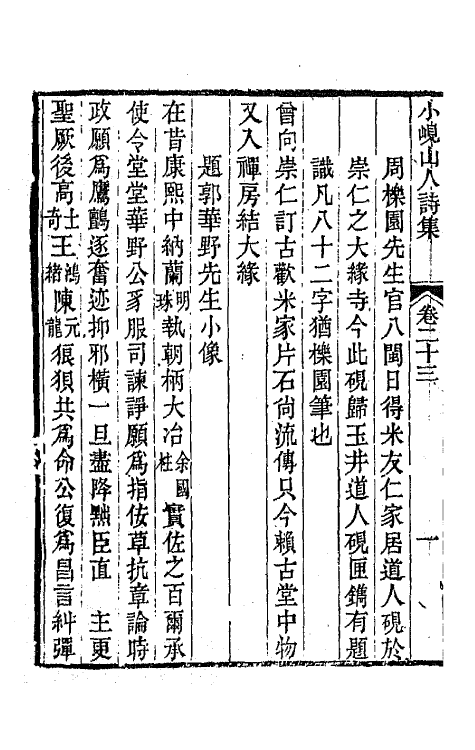 小峴山人詩集　卷二十三　一
周櫟園先生官八閩日得米友仁家居道人硯於
崇仁之大緣寺今此硯歸玉井道人硯匣鐫有題
識凡八十二字猶櫟園筆也
曾向崇仁訂古歡米家片石尙流傳只今賴古堂中物
又入禪房結大緣
題郭華野先生小像
在昔康熙中納蘭明珠執朝柄大冶余國柱實佐之百爾承
使令堂堂華野公豸服司諫諍願爲指佞草抗章論時
政願爲鷹鸇逐奮迹抑邪橫一旦盡降黜臣直　主更
聖厥後高士奇王鴻緒陳元龍狼狽共爲命公復爲昌言糾彈